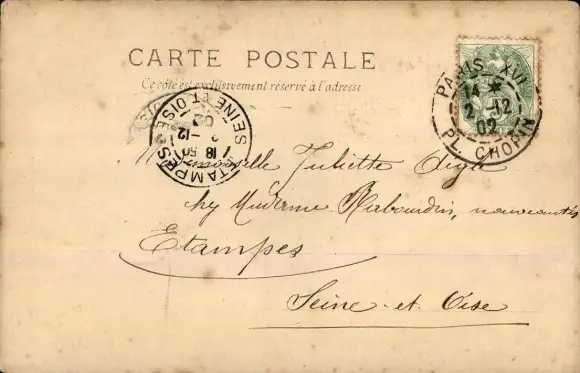 CARTE POSTALE
Ce côté est exclusivement réservé à l'adresse
PARIS XVI
14 *
2 - 12
02
PL. CHOPIN
ETAMPES
SEINE ET OISE
18 50
2 - 12
02
Juliette
chez Madame Rabourdin, nouveautés
Etampes
Seine-et-Oise